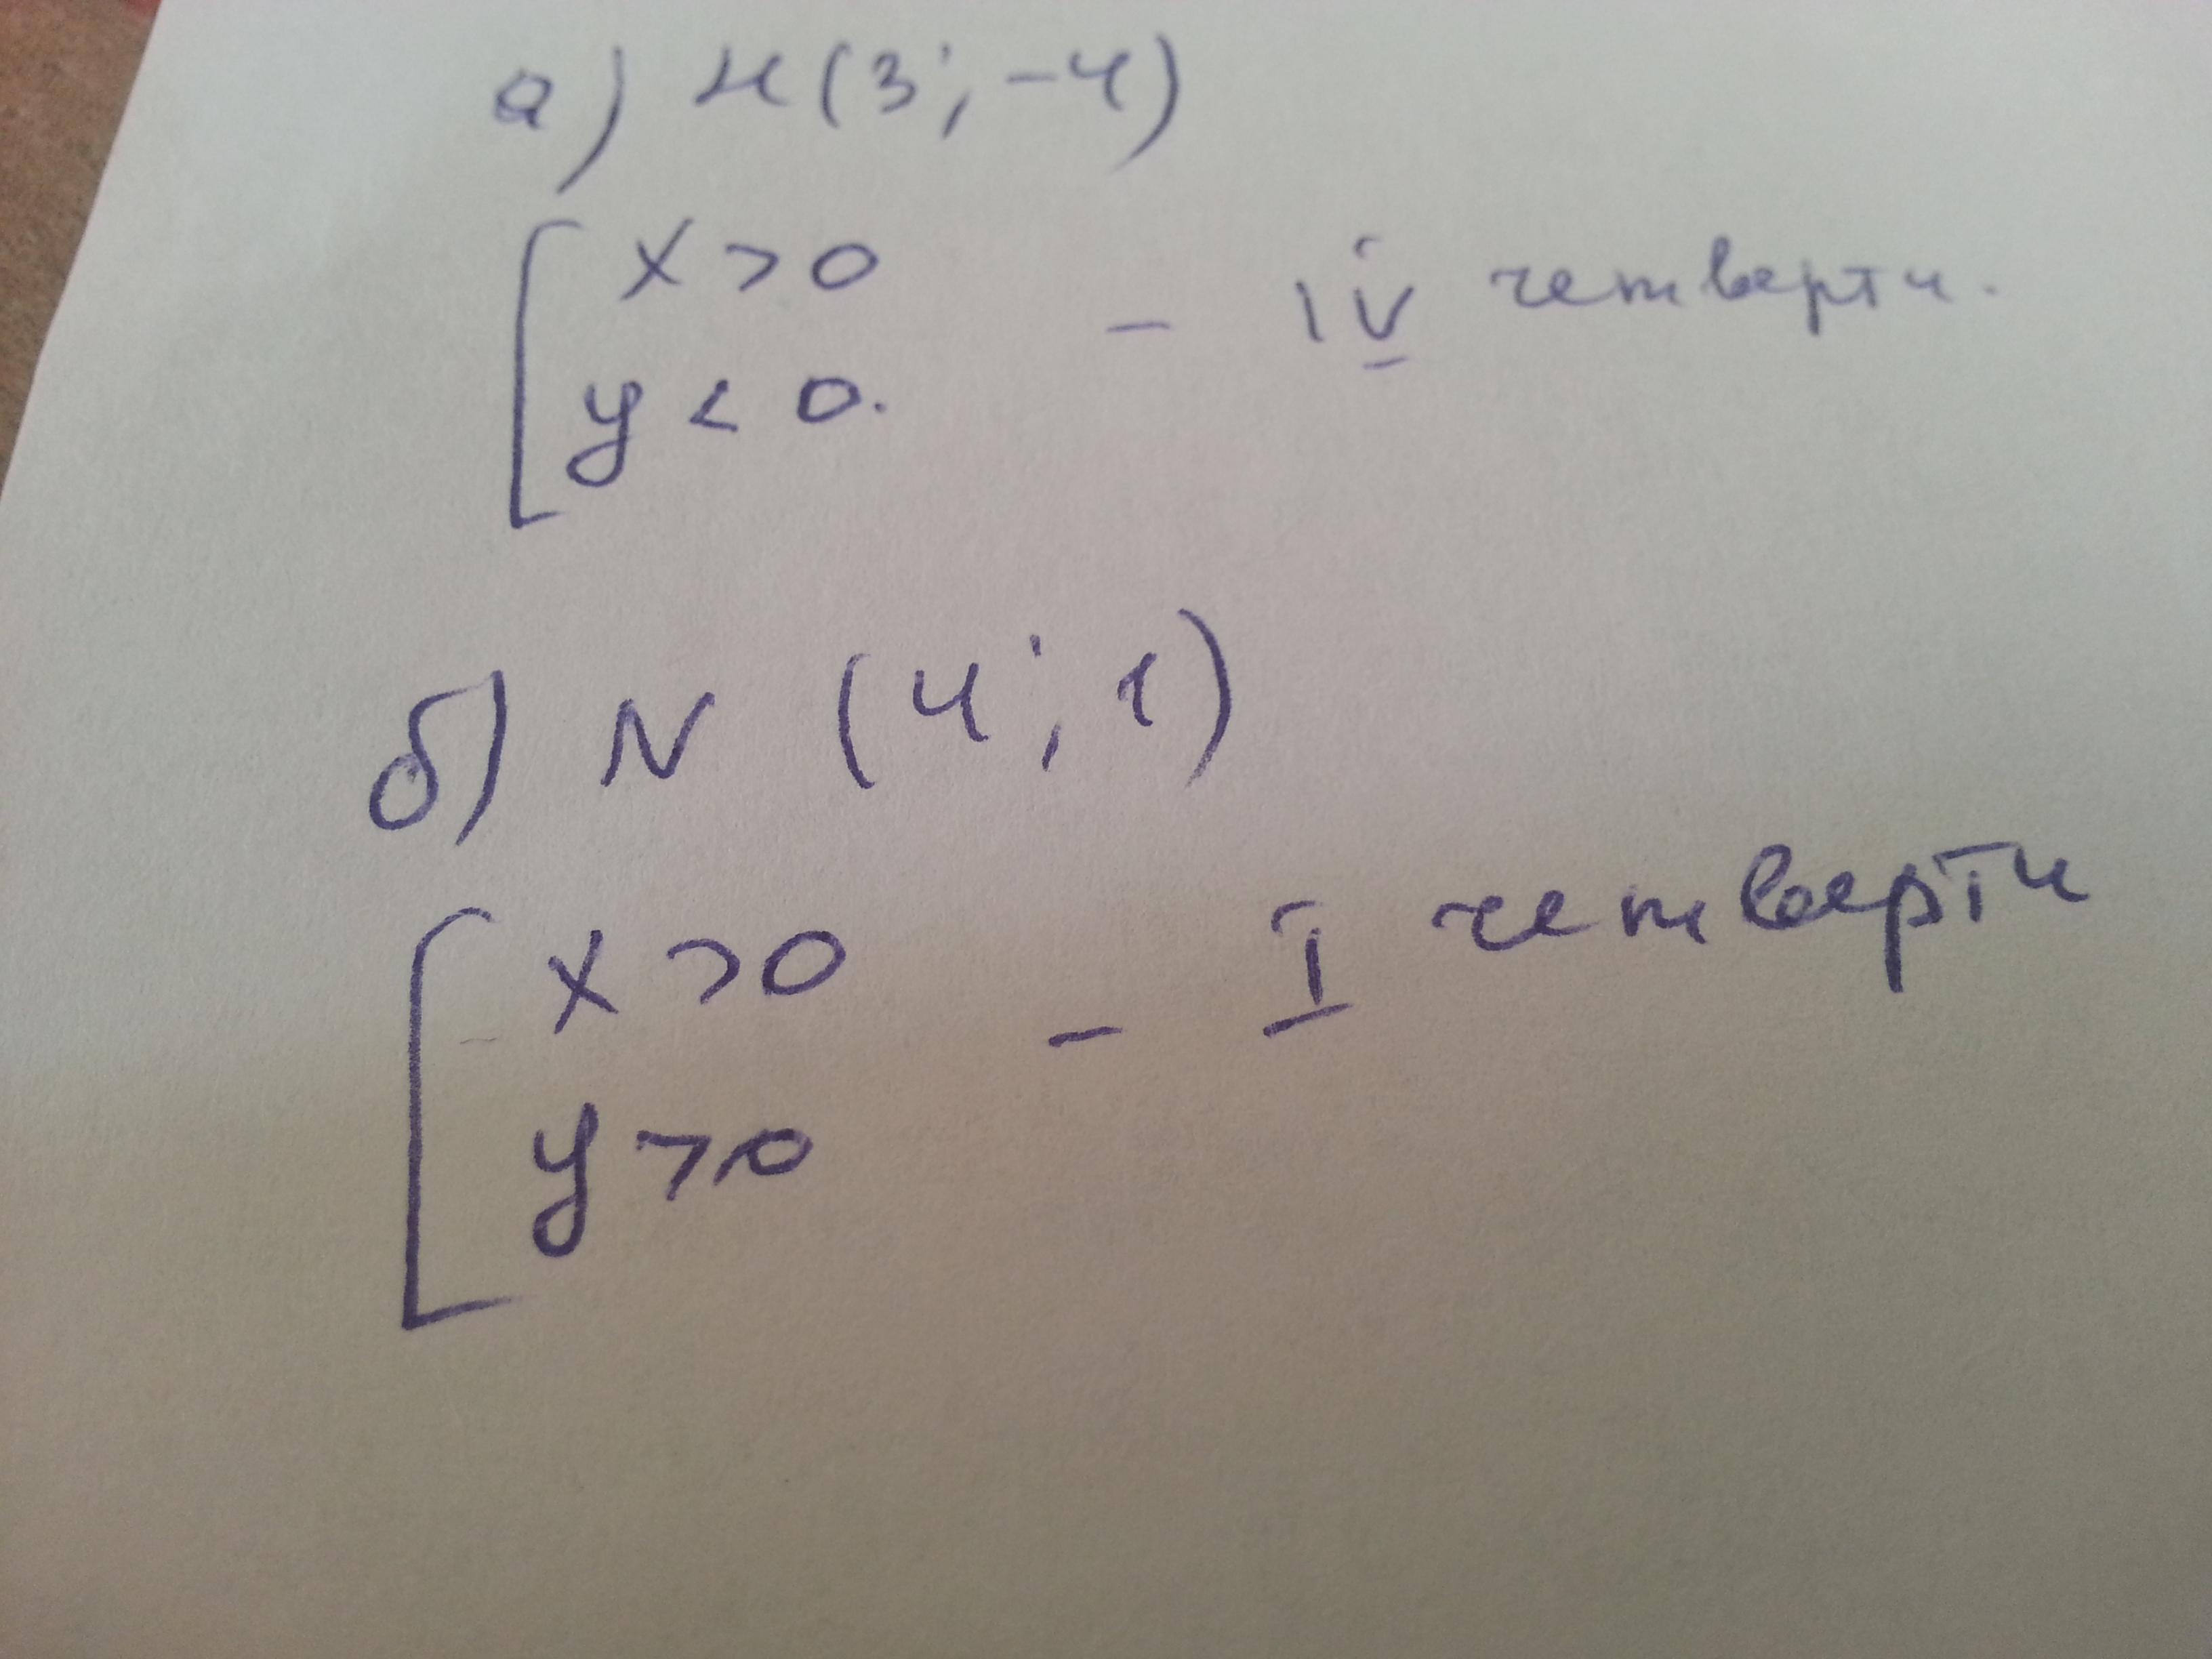 а) М(3; -4)
x > 0
y < 0.
- IV четверти.
б) N (4; 1)
x > 0
y > 0
- I четверти